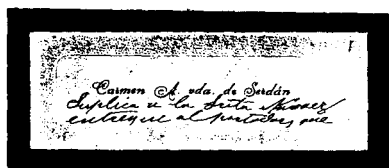 Carmen A. vda. de Serdán
Suplica a la Srta Narvaez
entregue al portador, que